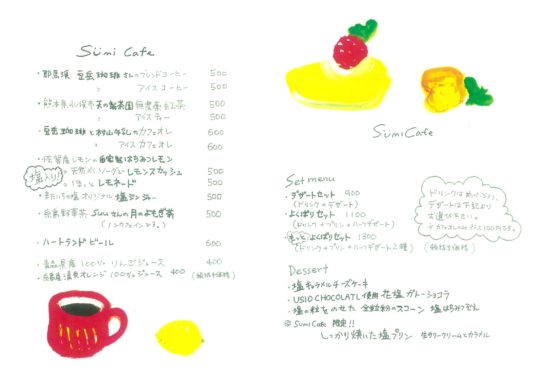 Sumi Cafe
・耶馬溪 豆岳珈琲さんのブレンドコーヒー 500
〃 アイスコーヒー 500
・熊本県水俣市 天の製茶園 無農薬紅茶 500
〃 アイスティー 500
・豆岳珈琲と村山牛乳のカフェオレ 600
アイスカフェオレ 600
・佐賀産レモンの自家製はちみつレモン
塩入り!
天然がくソーダで レモンスカッシュ 500
ほっと レモネード 500
・またいちの塩オリジナル 塩ジンジャー 500
・糸島野草茶 Suuさんの月のよもぎ茶 500
(ノンカフェインです。)
・ハートランドビール 600
・青森県産 100% りんごジュース 400
・糸島産清見オレンジ 100%ジュース 400 (税抜き価格)
Sumi Cafe
Set menu
・デザートセット 900
(ドリンク+デザート)
・よくばりセット 1100
(ドリンク+プリン+ハーフデザート)
・もっとよくばりセット 1300
(ドリンク+プリン+ハーフデザート2種) (税抜き価格)
ドリンクは
デザートは下記より
お選び下さい。
＊カフェオレはプラス100円です。
Dessert
・塩キャラメルチーズケーキ
・USIO CHOCOLATL使用 花塩ガトーショコラ
・塩の粒をのせた 全粒粉のスコーン 塩はちみつぞえ
@ Sumi Cafe 限定!!
しっかり焼いた塩プリン 生サワークリームとカラメル